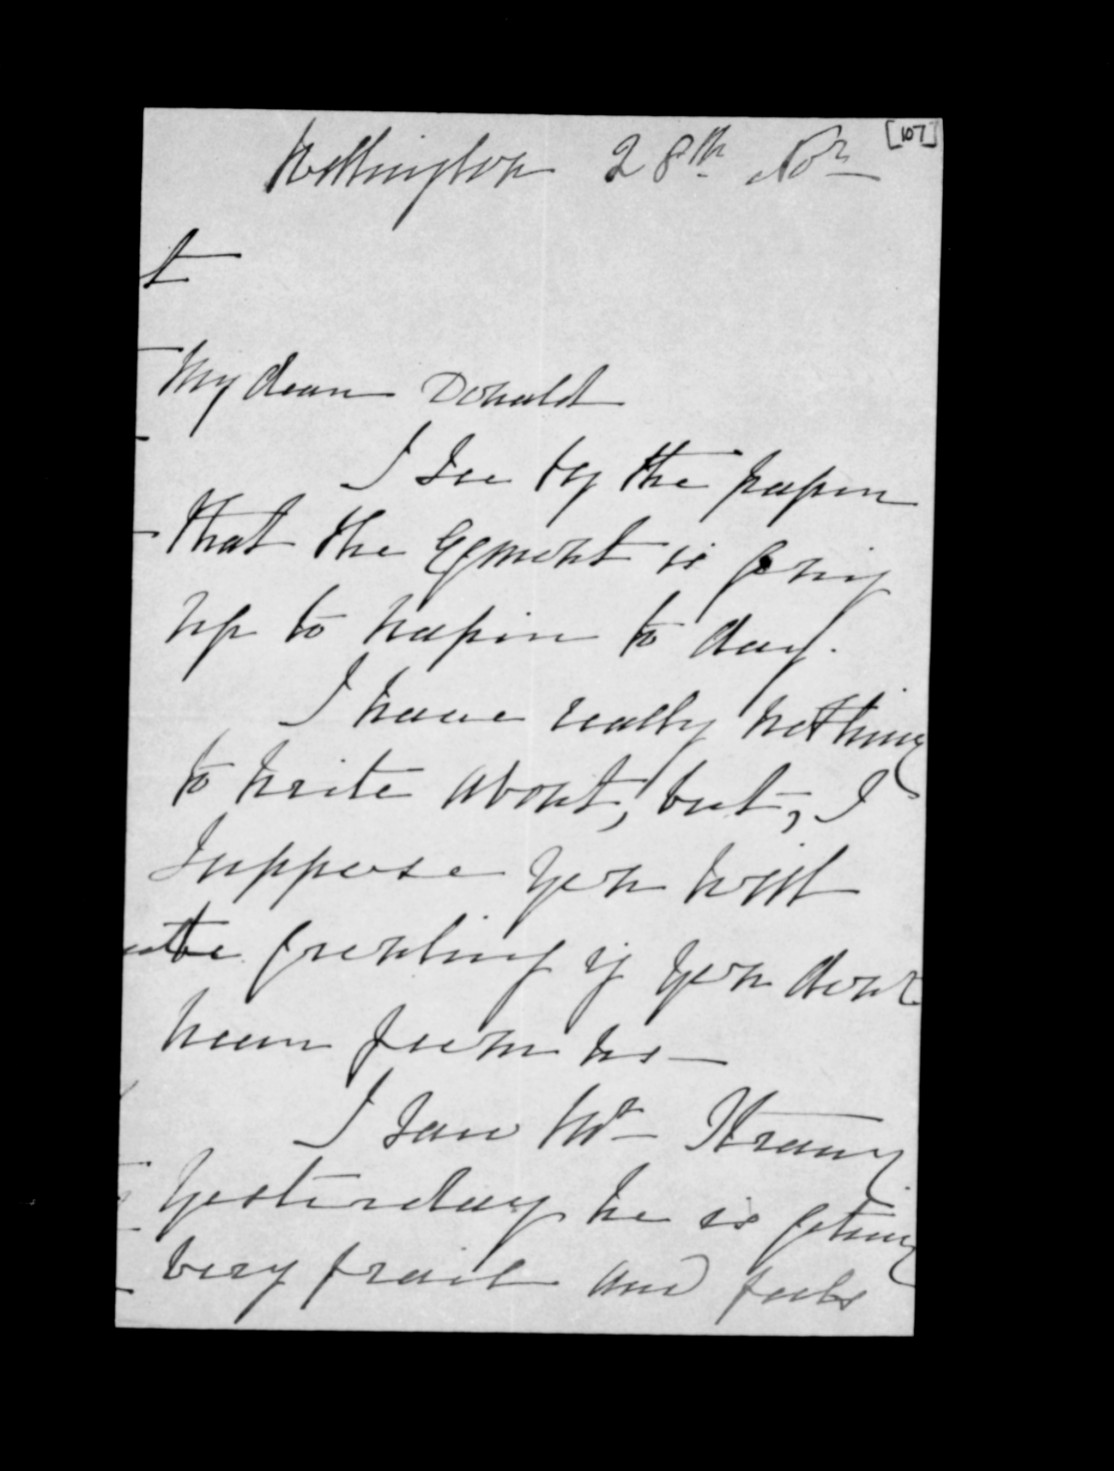 [107]
Wellington 28th Novr
My dear Donald
I see by the paper
that the Egmont is going
up to Napier to day.
I have really nothing
to write about, but, I
suppose you will
be growling if you dont
hear from me —
I saw Mr Strang
yesterday he is geting
very frail and feels